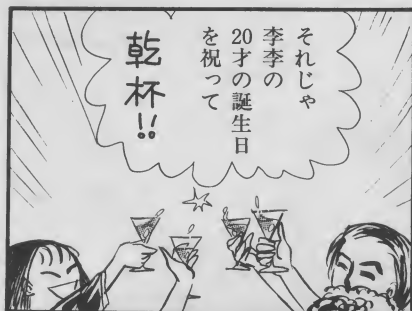 それじゃ
李李の
20才の誕生日
を祝って
乾杯!!